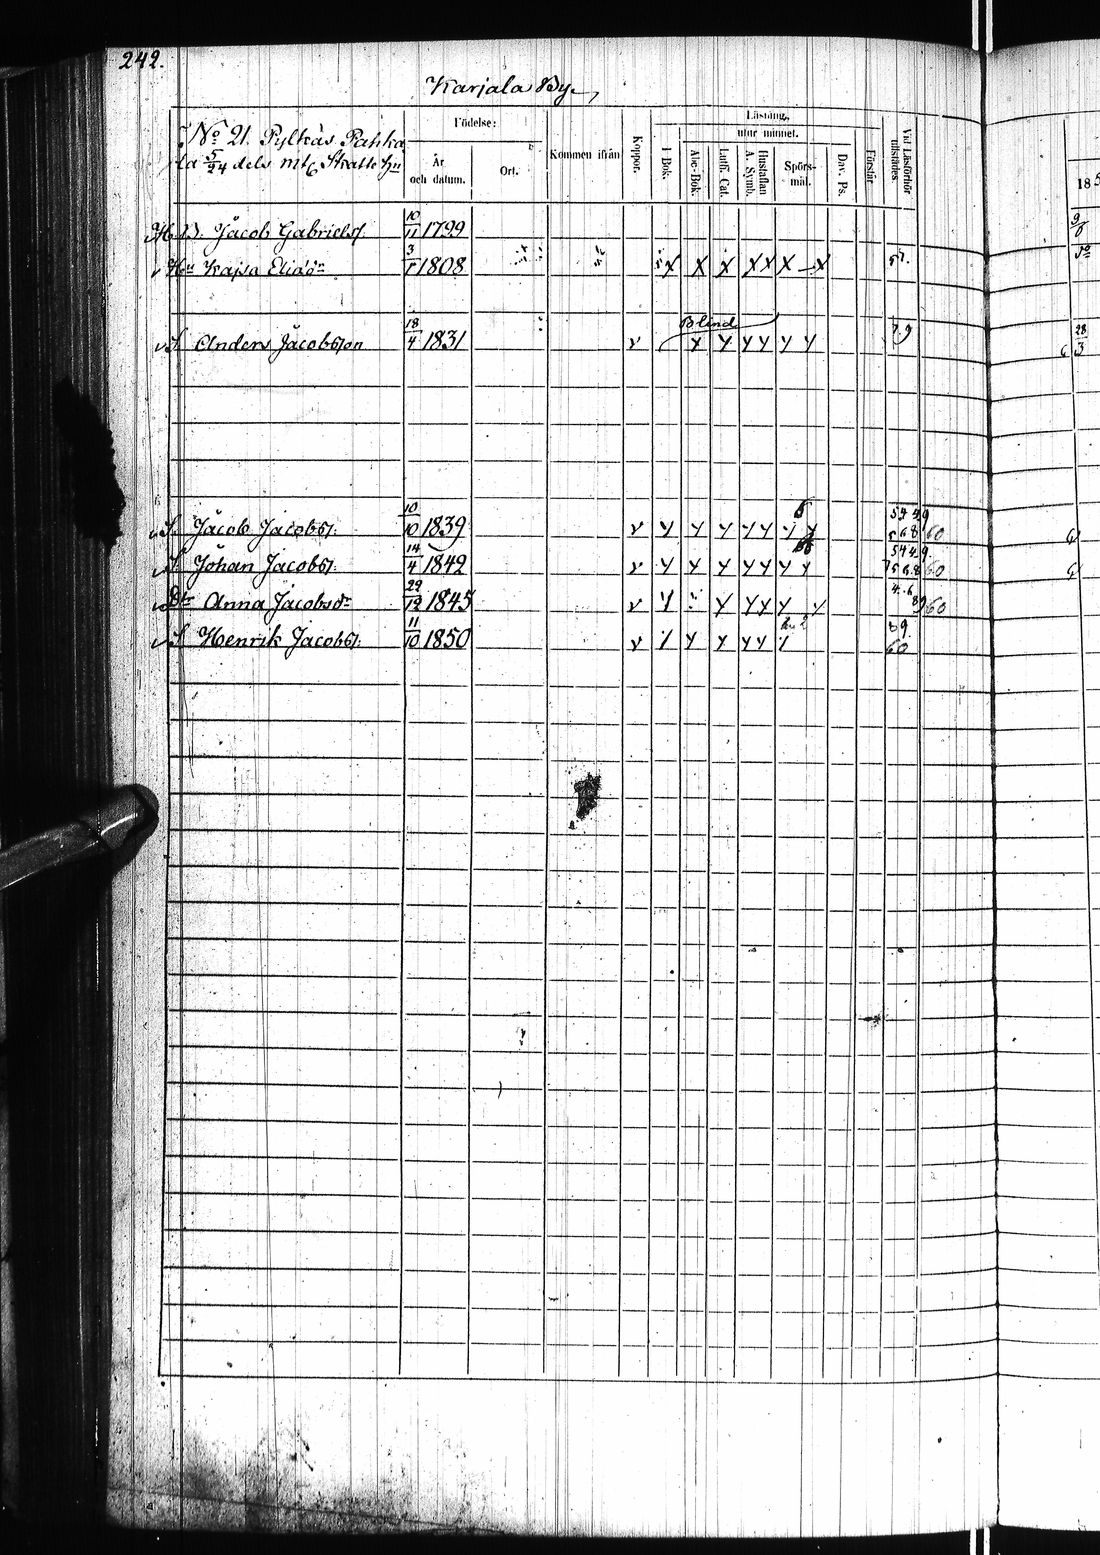 242.
Karjala By.
Nº 21. Pylkäs Pahka
la 5/24 dels mtl Skatte
Födelse:
År och datum.
Ort.
Kommen ifrån
Koppor.
Läsning,
utur minnet.
I Bok.
Abc-Bok.
Luth. Cat.
Hustaflan A. Symb.
Spörs-mål.
Dav. Ps.
Förstår
Vid Läsförhör tillstädes
185
Jacob Gabriels. 10/11 1799
Hu Kajsa Eliædr 3/1 1808 X X X X X X X 57.
Blind
v S Anders Jacobsson 18/4 1831 v y y y y y y 28/3
5
v S Jacob Jacobss. 10/10 1839 v y y y y y y y 54 49 568 60
v S Johan Jacobss. 14/4 1842 v y y y y y y y 5449 568 60
v Dr Anna Jacobsdr 22/12 1845 v y y y y y y 60
v S Henrik Jacobss. 11/10 1850 v / y y y y / 59 60